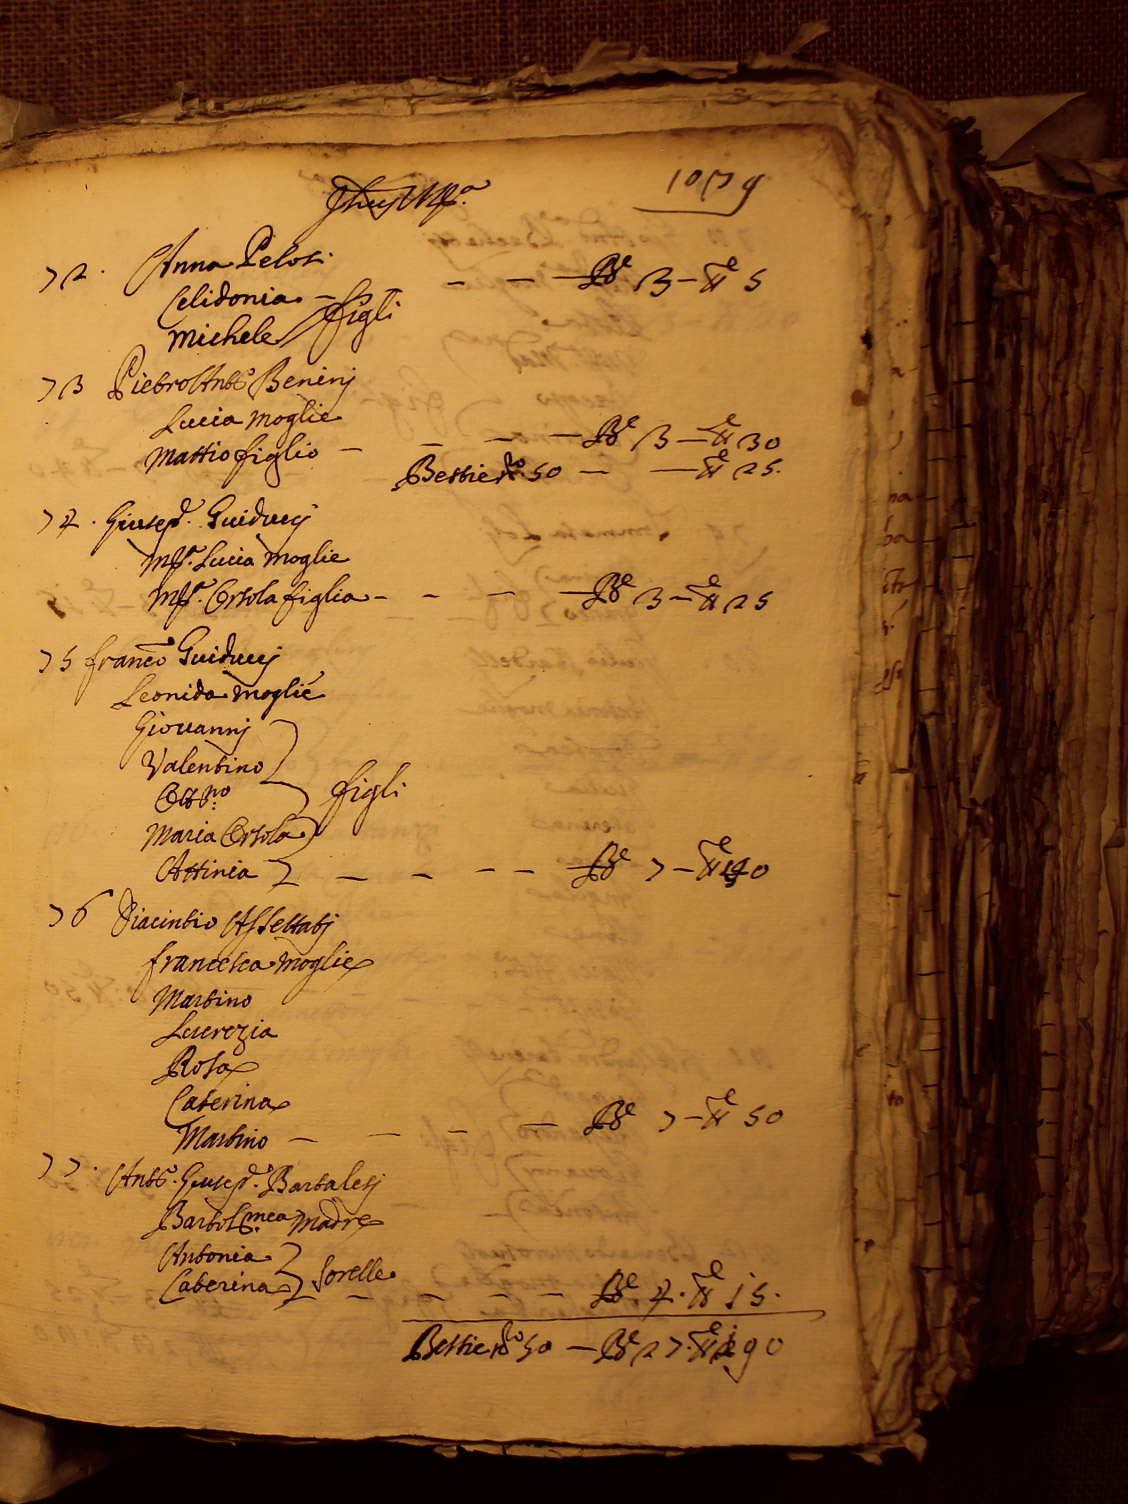 Jhus M.ª 1079
72. Anna Pelosi
Celidonia figli — — Bᵉ 3 — Hᵉ 5
Michele
73 Pietro Antº Beninj
Lucia Moglie
Mattio figlio — — — Bᵉ 3 — Hᵉ 30
Bestie nº 50 — — Hᵉ 25.
74. Giusepᵉ. Guiduccj
Mª. Lucia Moglie
Mª. Orsola figlia — — — Bᵉ 3 — Hᵉ 25
75 Francº Guiduccj
Leonida Moglie
Giouannj
Valentino
Ottno figli
Maria Orsola
Attinia — — — — Bᵉ 7 — Hᵉ 40
76 Giacintio Assettatj
Francesca Moglie
Martino
Lucrezia
Rosa
Caterina
Martino — — — — Bᵉ 7 — Hᵉ 50
77. Antº. Giusepᵉ. Bartalesj
Bartolᵒmea Madre
Antonia
Caterina Sorelle — — — — — Bᵉ 4. Hᵉ 15.
Bestie nº 50 — Bᵉ 27. Hᵉ 190